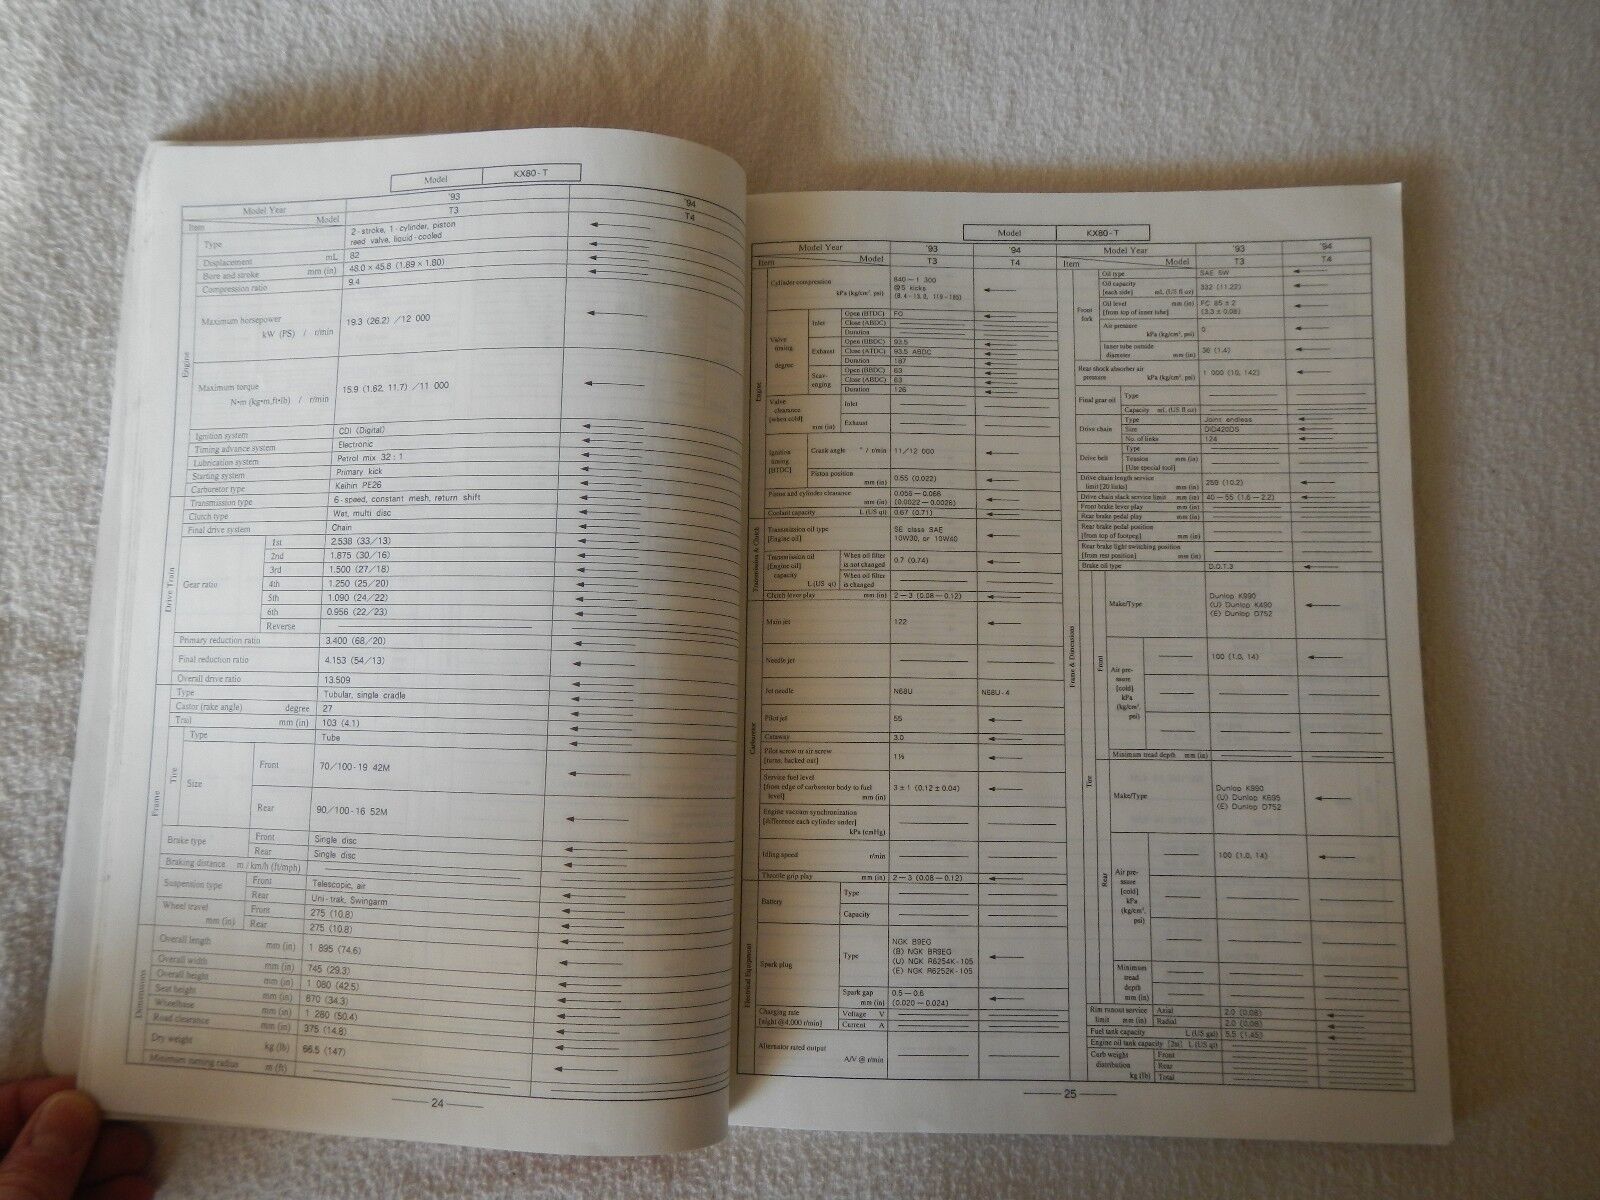 Model KX80-T
Model Year '93 '94
Item Model T3 T4
Engine
Type 2-stroke, 1-cylinder, piston
reed valve, liquid-cooled
Displacement mL 82
Bore and stroke mm (in) 48.0 × 45.8 (1.89 × 1.80)
Compression ratio 9.4
Maximum horsepower
kW (PS) / r/min 19.3 (26.2) /12 000
Maximum torque
N•m (kg•m,ft•lb) / r/min 15.9 (1.62, 11.7) /11 000
Ignition system CDI (Digital)
Timing advance system Electronic
Lubrication system Petrol mix 32 : 1
Starting system Primary kick
Carburetor type Keihin PE26
Drive Train
Transmission type 6-speed, constant mesh, return shift
Clutch type Wet, multi disc
Final drive system Chain
Gear ratio
1st 2.538 (33/13)
2nd 1.875 (30/16)
3rd 1.500 (27/18)
4th 1.250 (25/20)
5th 1.090 (24/22)
6th 0.956 (22/23)
Reverse
Primary reduction ratio 3.400 (68/20)
Final reduction ratio 4.153 (54/13)
Overall drive ratio 13.509
Frame
Type Tubular, single cradle
Castor (rake angle) degree 27
Trail mm (in) 103 (4.1)
Tire
Type Tube
Size
Front 70/100-19 42M
Rear 90/100-16 52M
Brake type Front Single disc
Rear Single disc
Braking distance m / km/h (ft/mph)
Suspension type Front Telescopic, air
Rear Uni-trak, Swingarm
Wheel travel Front 275 (10.8)
mm (in) Rear 275 (10.8)
Dimensions
Overall length mm (in) 1 895 (74.6)
Overall width mm (in) 745 (29.3)
Overall height mm (in) 1 080 (42.5)
Seat height mm (in) 870 (34.3)
Wheelbase mm (in) 1 280 (50.4)
Road clearance mm (in) 375 (14.8)
Dry weight kg (lb) 66.5 (147)
Minimum turning radius m (ft)
24
Model KX80-T
Model Year '93 '94
Item Model T3 T4
Engine
Cylinder compression
kPa (kg/cm², psi)
@5 kicks
Valve
timing
degree
Inlet Open (BTDC) FO
Close (ABDC)
Duration
Exhaust Open (BBDC) 93.5
Close (ATDC) 93.5 ABDC
Duration 187
Scav-
enging Open (BBDC) 63
Close (ABDC) 63
Duration 126
Valve
clearance
[when cold]
mm (in)
Inlet
Exhaust
Ignition
timing
[BTDC]
Crank angle ° / r/min 11/12 000
Piston position
mm (in) 0.55 (0.022)
Piston and cylinder clearance
mm (in) 0.056 — 0.066
(0.0022 — 0.0026)
Coolant capacity L (US qt) 0.67 (0.71)
Transmission & Clutch
Transmission oil type
[Engine oil]
SE class SAE
10W30, or 10W40
Transmission oil
[Engine oil]
capacity
L (US qt)
When oil filter
is not changed 0.7 (0.74)
When oil filter
is changed
Clutch lever play mm (in) 2 — 3 (0.08 — 0.12)
Carburetor
Main jet 122
Needle jet
Jet needle N68U N68U-4
Pilot jet 55
Cutaway 3.0
Pilot screw or air screw
[turns, backed out] 1½
Service fuel level
[from edge of carburetor body to fuel
level] mm (in) 3 ± 1 (0.12 ± 0.04)
Engine vacuum synchronization
[difference each cylinder under]
kPa (cmHg)
Idling speed r/min
Throttle grip play mm (in) 2 — 3 (0.08 — 0.12)
Electrical Equipment
Battery
Type
Capacity
Spark plug
Type
NGK B9EG
(B) NGK BR9EG
(U) NGK R6254K-105
(E) NGK R6252K-105
Spark gap
mm (in) 0.5 — 0.6
(0.020 — 0.024)
Charging rate
[night @4,000 r/min]
Voltage V
Current A
Alternator rated output
A/V @ r/min
Model Year '93 '94
Item Model T3 T4
Frame & Dimensions
Front
fork
Oil type SAE 5W
Oil capacity
[each side] mL (US fl oz) 332 (11.22)
Oil level mm (in)
[from top of inner tube] FC 85 ± 2
(3.3 ± 0.08)
Air pressure
kPa (kg/cm², psi) 0
Inner tube outside
diameter mm (in) 36 (1.4)
Rear shock absorber air
pressure kPa (kg/cm², psi) 1 000 (10, 142)
Final gear oil
Type
Capacity mL (US fl oz)
Drive chain
Type Joint endless
Size DID420DS
No. of links 124
Drive belt
Type
Tension mm (in)
[Use special tool]
Drive chain length service
limit [20 links] mm (in) 259 (10.2)
Drive chain slack service limit mm (in) 40 — 55 (1.6 — 2.2)
Front brake lever play mm (in)
Rear brake pedal play mm (in)
Rear brake pedal position
[from top of footpeg] mm (in)
Rear brake light switching position
[from rest position] mm (in)
Brake oil type D.O.T.3
Tire
Front
Make/Type
Dunlop K990
(U) Dunlop K490
(E) Dunlop D752
Air pre-
ssure
[cold]
kPa
(kg/cm²,
psi)
100 (1.0, 14)
Minimum tread depth mm (in)
Rear
Make/Type
Dunlop K990
(U) Dunlop K695
(E) Dunlop D752
Air pre-
ssure
[cold]
kPa
(kg/cm²,
psi)
100 (1.0, 14)
Minimum
tread
depth
mm (in)
Rim runout service
limit mm (in)
Axial 2.0 (0.08)
Radial 2.0 (0.08)
Fuel tank capacity L (US gal) 5.5 (1.45)
Engine oil tank capacity [2st] L (US qt)
Curb weight
distribution
kg (lb)
Front
Rear
Total
25